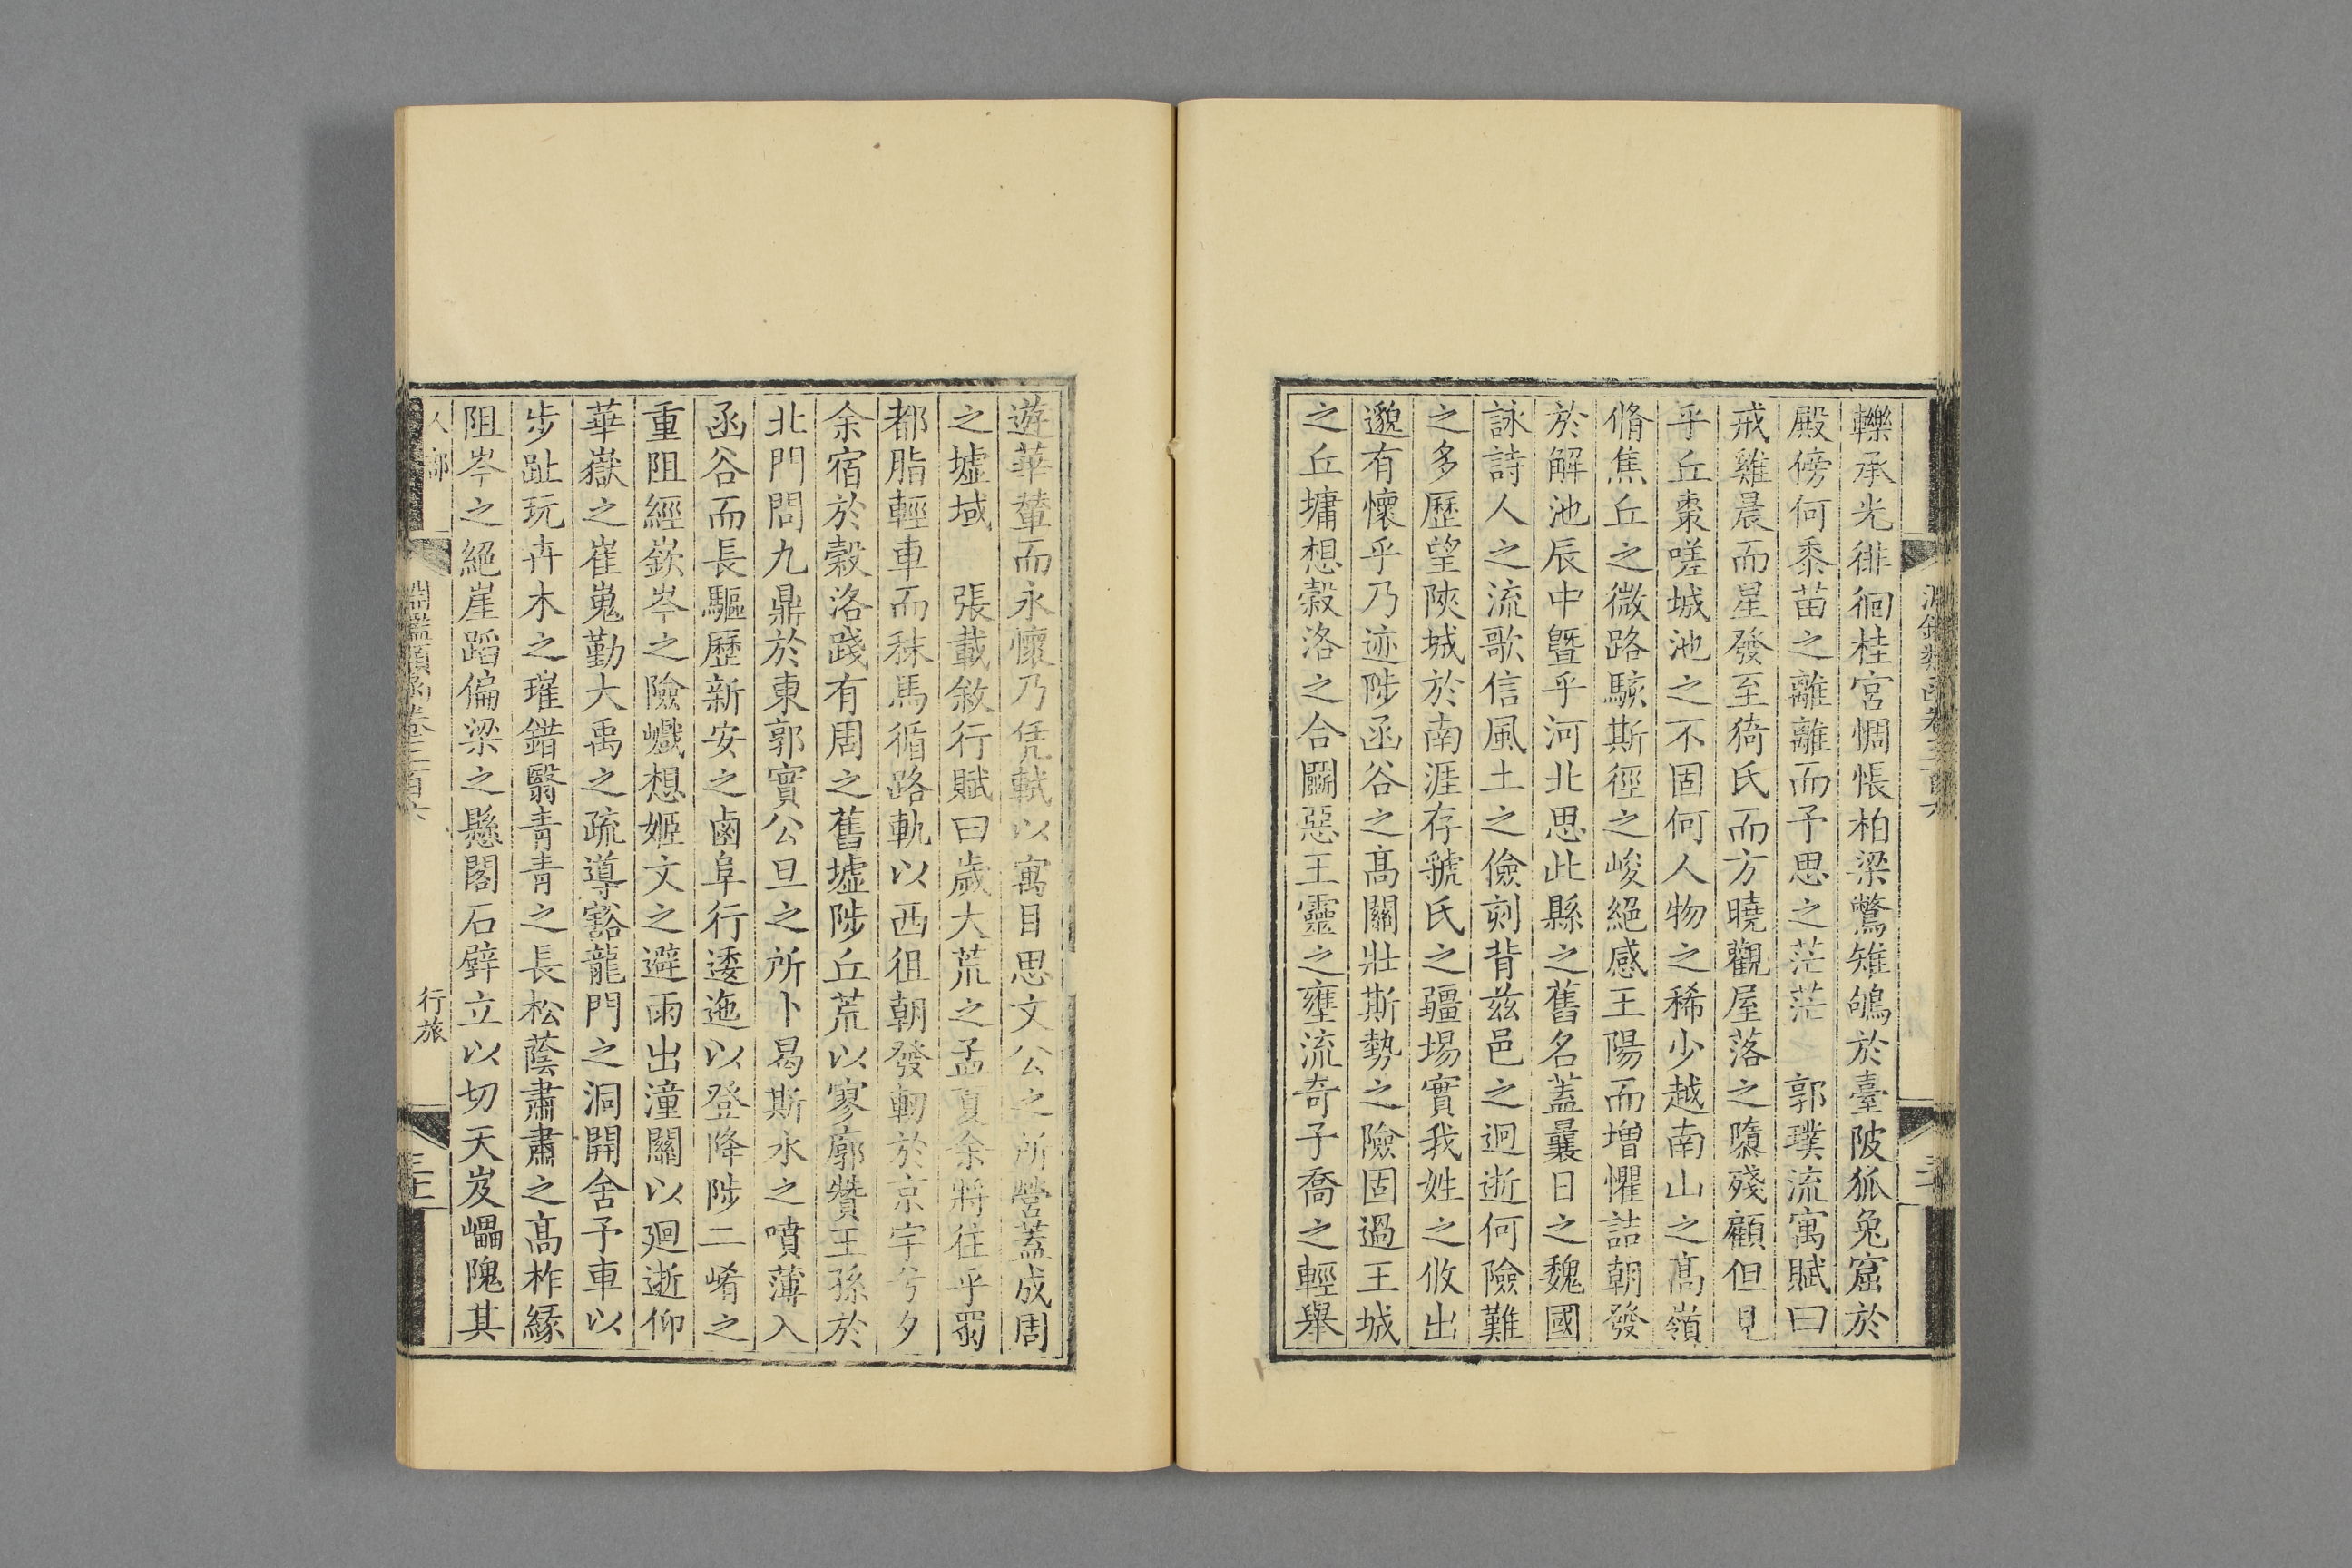 轢承光徘徊桂宮惆悵柏梁驚雉雊於臺陂狐兔窟於
殿傍何黍苗之離離而予思之茫茫　郭璞流寓賦曰
戒雞晨而星發至猗氏而方曉觀屋落之隳殘顧但見
乎丘棗嗟城池之不固何人物之稀少越南山之高嶺
脩焦丘之微路駭斯徑之峻絕感王陽而增懼詰朝發
於解池辰中暨乎河北思此縣之舊名蓋曩日之魏國
詠詩人之流歌信風土之儉刻背茲邑之迥逝何險難
之多歷望陜城於南涯存虢氏之疆埸實我姓之攸出
邈有懷乎乃迹陟函谷之高關壯斯勢之險固過王城
之丘墉想穀洛之合鬭惡王靈之壅流奇子喬之輕舉
遊華輦而永懷乃凭軾以寓目思文公之所營蓋成周
之墟域　張載敘行賦曰歲大荒之孟夏余將往乎蜀
都脂輕車而秣馬循路軌以西徂朝發軔於京宇兮夕
余宿於穀洛踐有周之舊墟陟丘荒以寥廓贊王孫於
北門問九鼎於東郭實公旦之所卜曷斯水之噴薄入
函谷而長驅歷新安之鹵阜行逶迤以登降陟二崤之
重阻經嶔岑之險巇想姬文之避雨出潼關以廻逝仰
華嶽之崔嵬勤大禹之疏導豁龍門之洞開舍予車以
步趾玩卉木之璀錯翳青青之長松蔭肅肅之高柞緣
阻岑之絕崖蹈偏梁之懸閣石壁立以切天岌㠥隗其
人部
淵鑑類函卷三百六
行旅